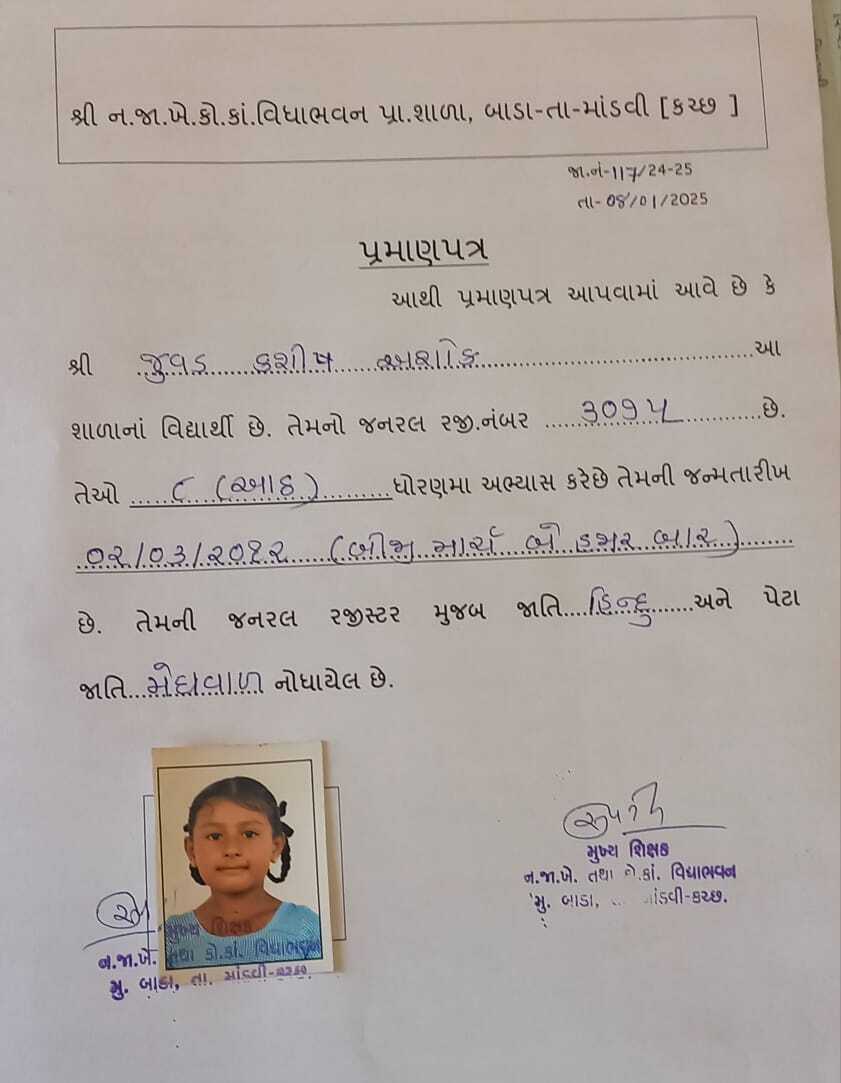 શ્રી ન.જા.ખે.કો.કાં.વિધાભવન પ્રા.શાળા, બાડા-તા-માંડવી [કચ્છ ]
જા.નં-117/24-25
તા- 08/01/2025
પ્રમાણપત્ર
આથી પ્રમાણપત્ર આપવામાં આવે છે કે
શ્રી જુવડ કશીષ અશોક આ
શાળાનાં વિદ્યાર્થી છે. તેમનો જનરલ રજી.નંબર ૩૦૧૫ છે.
તેઓ ૮ (આઠ) ધોરણમા અભ્યાસ કરેછે તેમની જન્મતારીખ
૦૨/૦૩/૨૦૧૨ (બીજી માર્ચ બે હજાર બાર)
છે. તેમની જનરલ રજીસ્ટર મુજબ જાતિ હિન્દુ અને પેટા
જાતિ મેઘવાળ નોધાયેલ છે.
મુખ્ય શિક્ષક
ન.જા.ખે. તથા કાં. વિદ્યાભવન
મુ. બાડા, માંડવી-કચ્છ.
મુખ્ય શિક્ષક
ન.જા.ખે. તથા કો.કાં. વિદ્યાભવન
મુ. બાડા, તા. માંડવી-કચ્છ